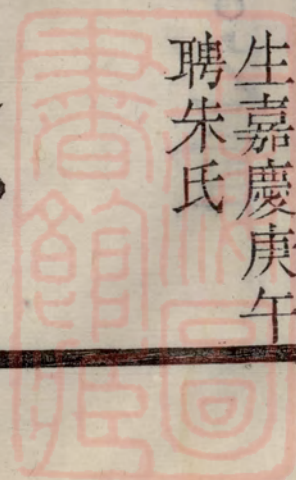 生嘉慶庚午
聘朱氏